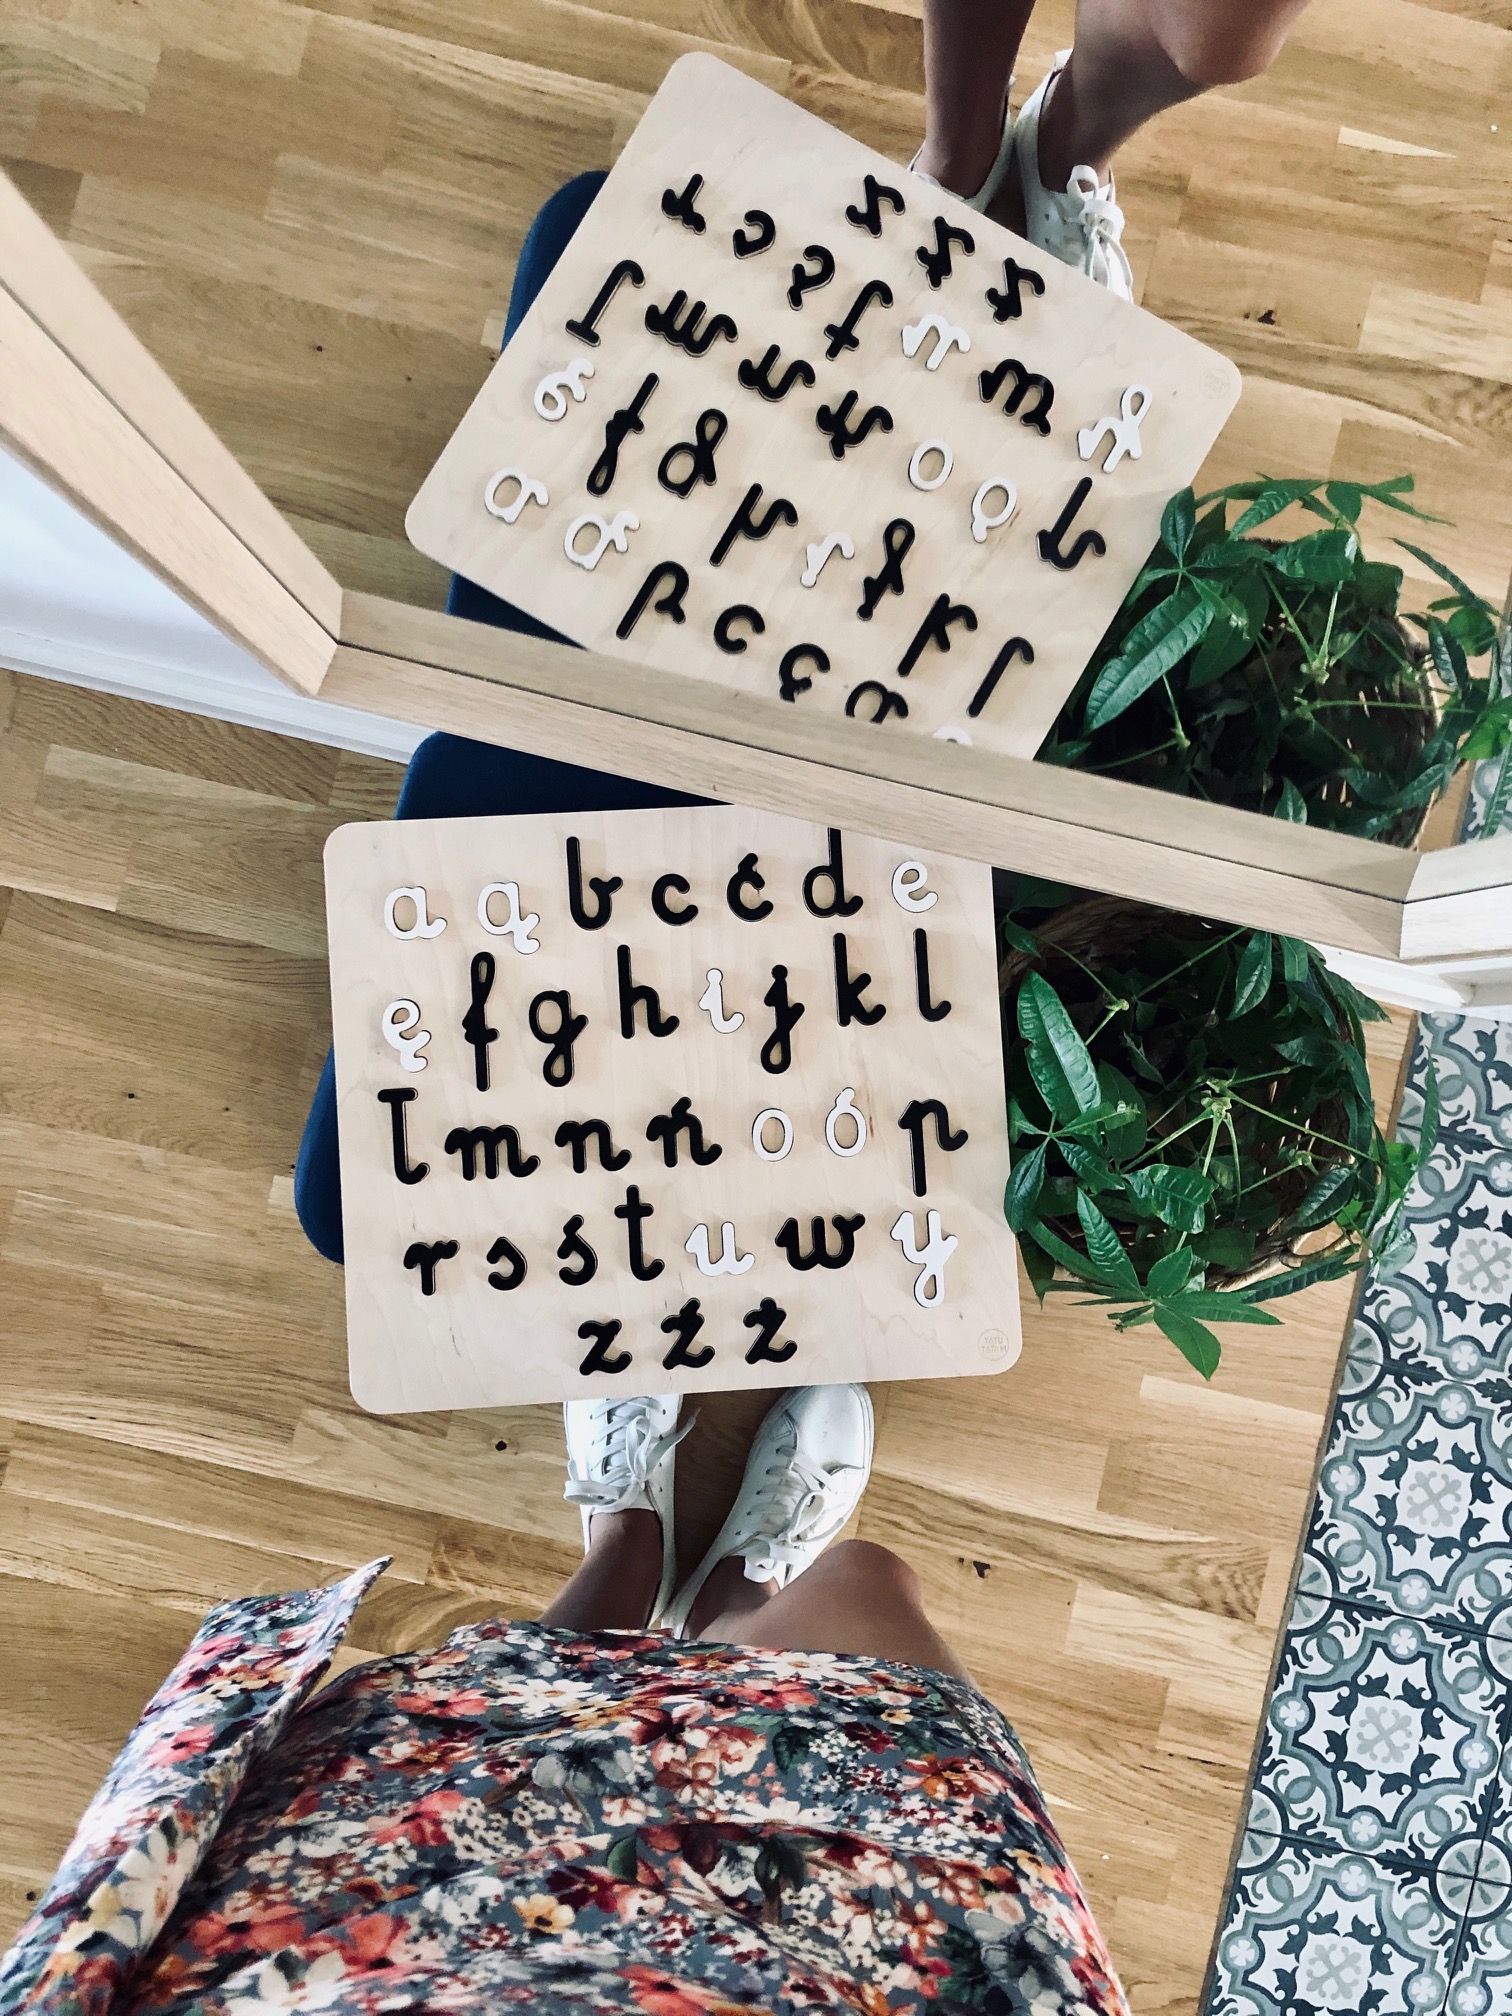 a ą b c ć d e
ę f g h i j k l
ł m n ń o ó p
r s ś t u w y
z ź ż
TATU
TATAM